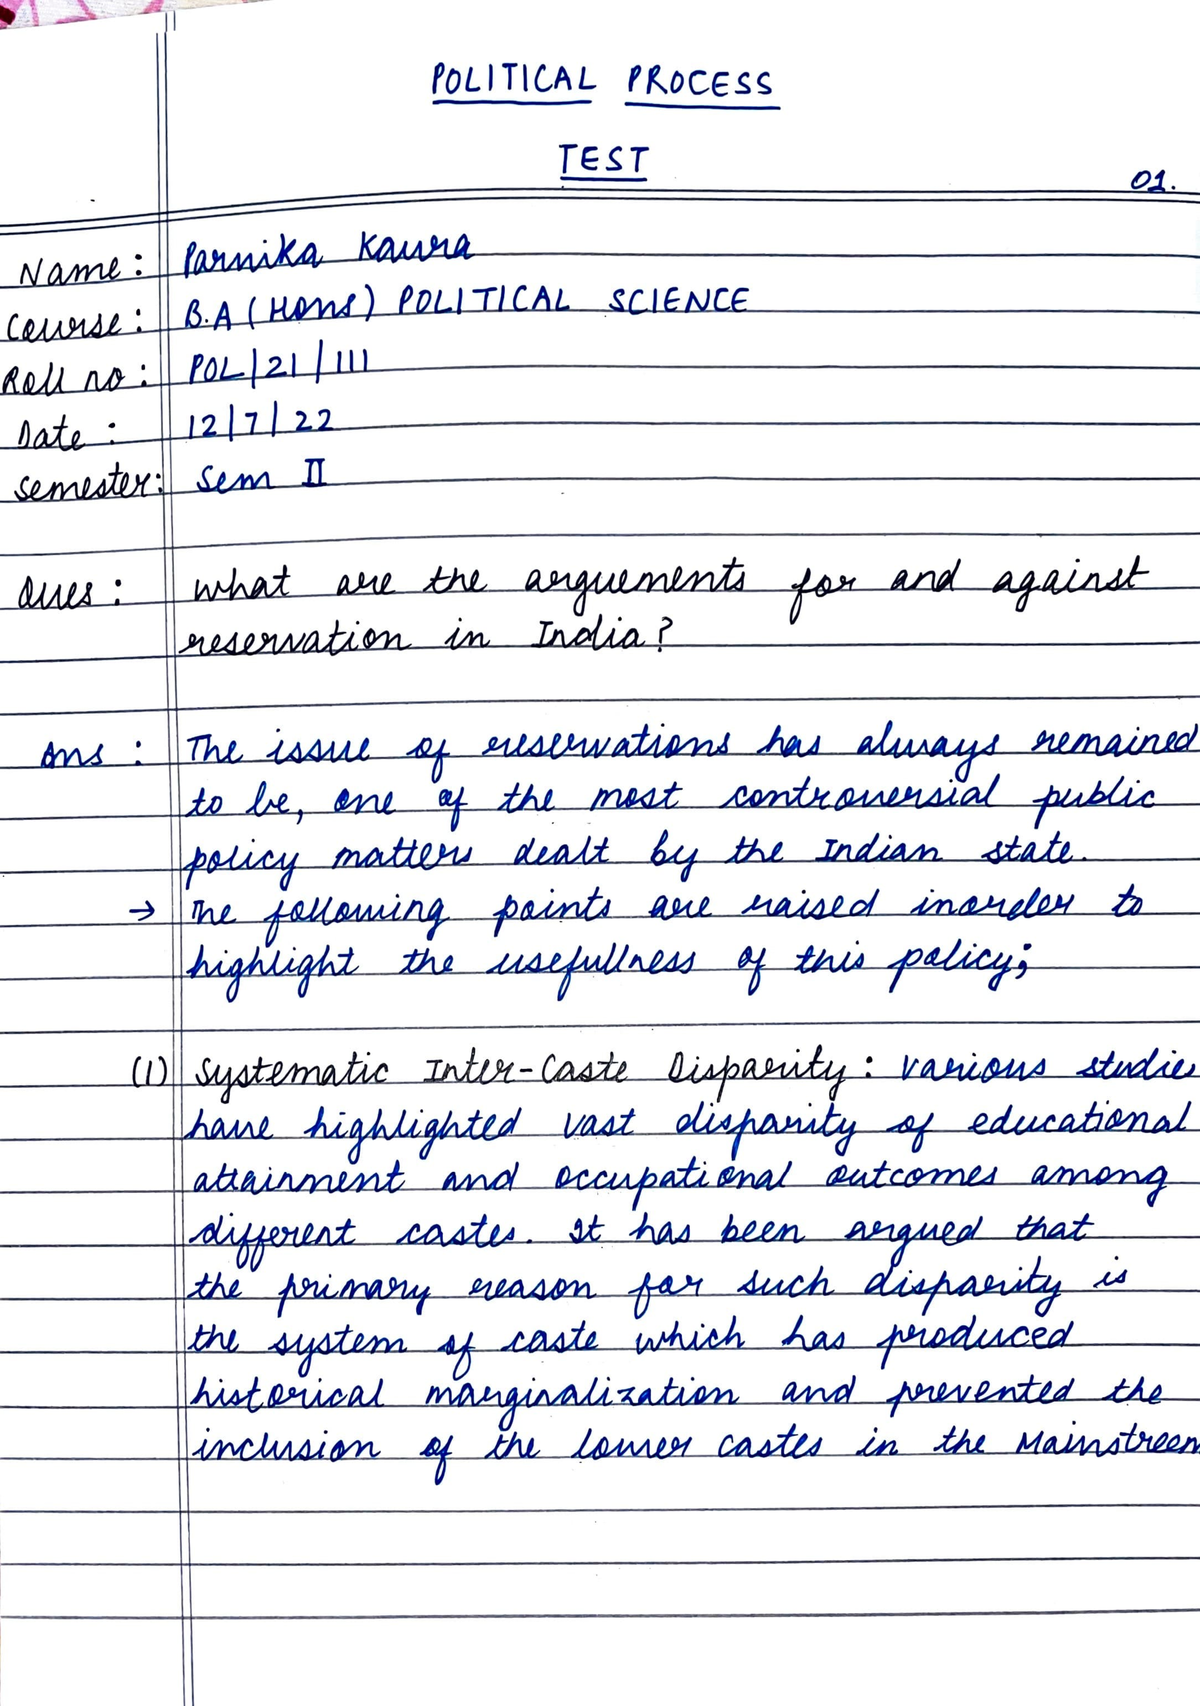 POLITICAL PROCESS
TEST
01.
Name: Parnika Kaura
Course: B.A (Hons) POLITICAL SCIENCE
Roll no: POL/21/111
Date: 12/7/22
Semester: Sem II
Ques: What are the arguements for and against
reservation in India?
Ans: The issue of reservations has always remained
to be, one of the most controversial public
policy matters dealt by the Indian state.
→ The following points are raised inorder to
highlight the usefullness of this policy;
(1) Systematic Inter-Caste Disparity: Various studies
have highlighted vast disparity of educational
attainment and occupational outcomes among
different castes. It has been argued that
the primary reason for such disparity is
the system of caste which has produced
historical marginalization and prevented the
inclusion of the lower castes in the Mainstreem